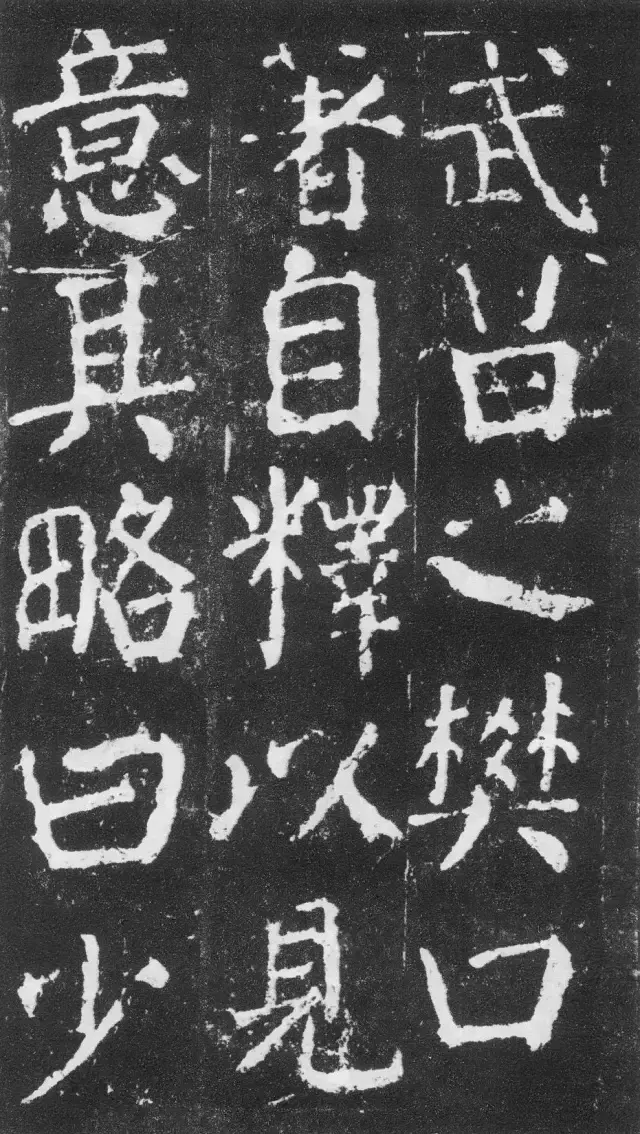 武昌之樊口
著自釋以見
意其略曰少